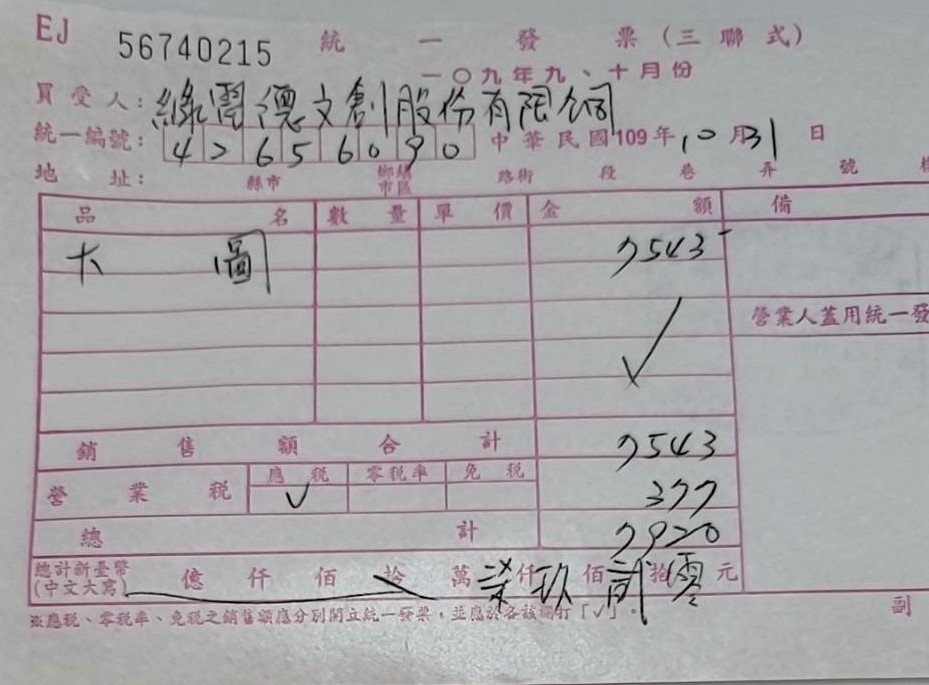 EJ 56740215 統一發票(三聯式)
一〇九年九、十月份
買受人: 綠 德文創股份有限公司
統一編號: 42656090 中華民國109年10月31日
地址: 縣市 鄉鎮市區 路街 段 巷 弄 號
品名 數量 單價 金額 備
大圖 7543
營業人蓋用統一發
銷售額合計 7543
應稅 零稅率 免稅
營業稅 ✓ 377
總計 7920
總計新臺幣(中文大寫) 億 仟 佰 拾 萬 柒仟玖佰貳拾零元
※應稅、零稅率、免稅之銷售額應分別開立統一發票,並應於各該欄打「✓」。
副